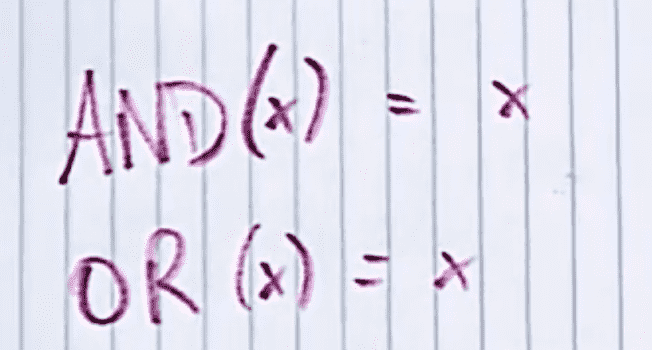 AND(x) = x
OR(x) = x